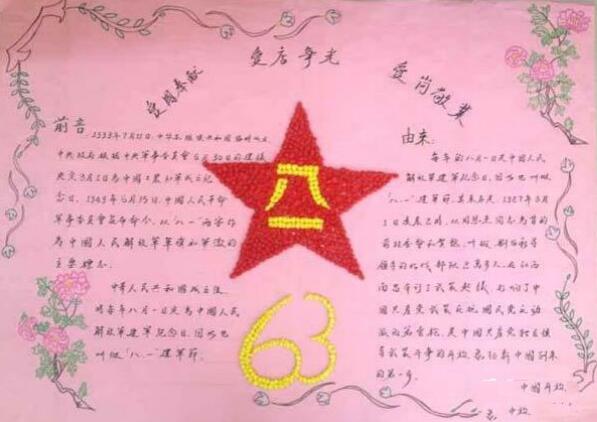 爱国奉献
爱店争光
爱岗敬业
八
一
63
前言:
1933年7月11日,中华苏维埃共和国临时
中央政府根据中央军事委员会6月30日的建议
决定8月1日为中国工农红军成立纪
念日。1949年6月15日,中国人民革命
军事委员会发布命令,以"八一"两字作
为中国人民解放军军旗和军徽的
主要标志。
中华人民共和国成立后,
将每年八月一日定为中国人民
解放军建军纪念日。因此也
叫做"八.一"建军节。
由来:
每年的八月一日是中国人民
解放军建军纪念日,因此也叫做
"八.一"建军节。1927年8月
1日凌晨2时,以周恩来同志为首的
前敌委员会和贺龙、叶挺、朱德等
领导的 部队 在江西
南昌举行了武装起义,打响了中
国共产党武装反抗国民党反动
派的第一枪,是中国共产党独立领
导武装斗争的开始,
的第一步。